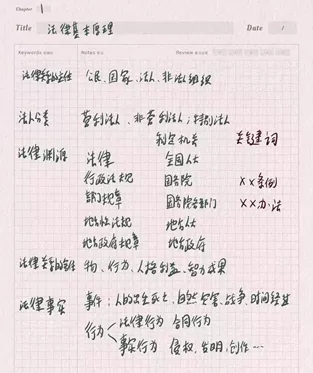 Chapter 1
Title 法律基本原理 Date /
Keywords Notes
法律关系主体 公民、国家、法人、非法组织
法人分类 营利法人、非营利法人、特别法人
制定机关 关键词
法律渊源 法律 全国人大
行政法规 国务院 XX条例
部门规章 国务院各部门 XX办法
地方性法规 地方人大
地方政府规章 地方政府
法律关系的客体 物、行为、人格利益、智力成果
法律事实 事件:人的出生死亡、自然灾害、战争、时间经过
行为 法律行为 合同行为
事实行为 侵权、发明、创作…